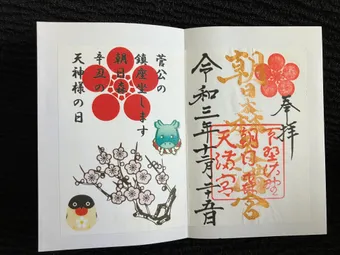 菅公の
鎮座坐します
朝日森
辛丑の
天神様の日
奉拝
朝日森天満宮
下野佐野
朝日森
天満宮
令和三年十二月二十五日